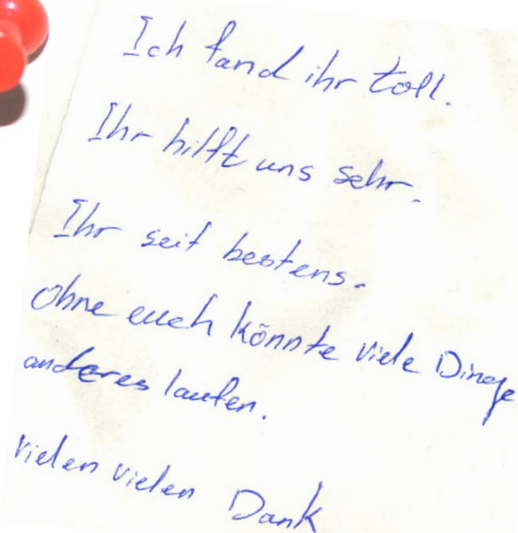 Ich fand ihr toll.
Ihr hilft uns sehr.
Ihr seit bestens.
ohne euch könnte viele Dinge
anderes laufen.
vielen vielen Dank